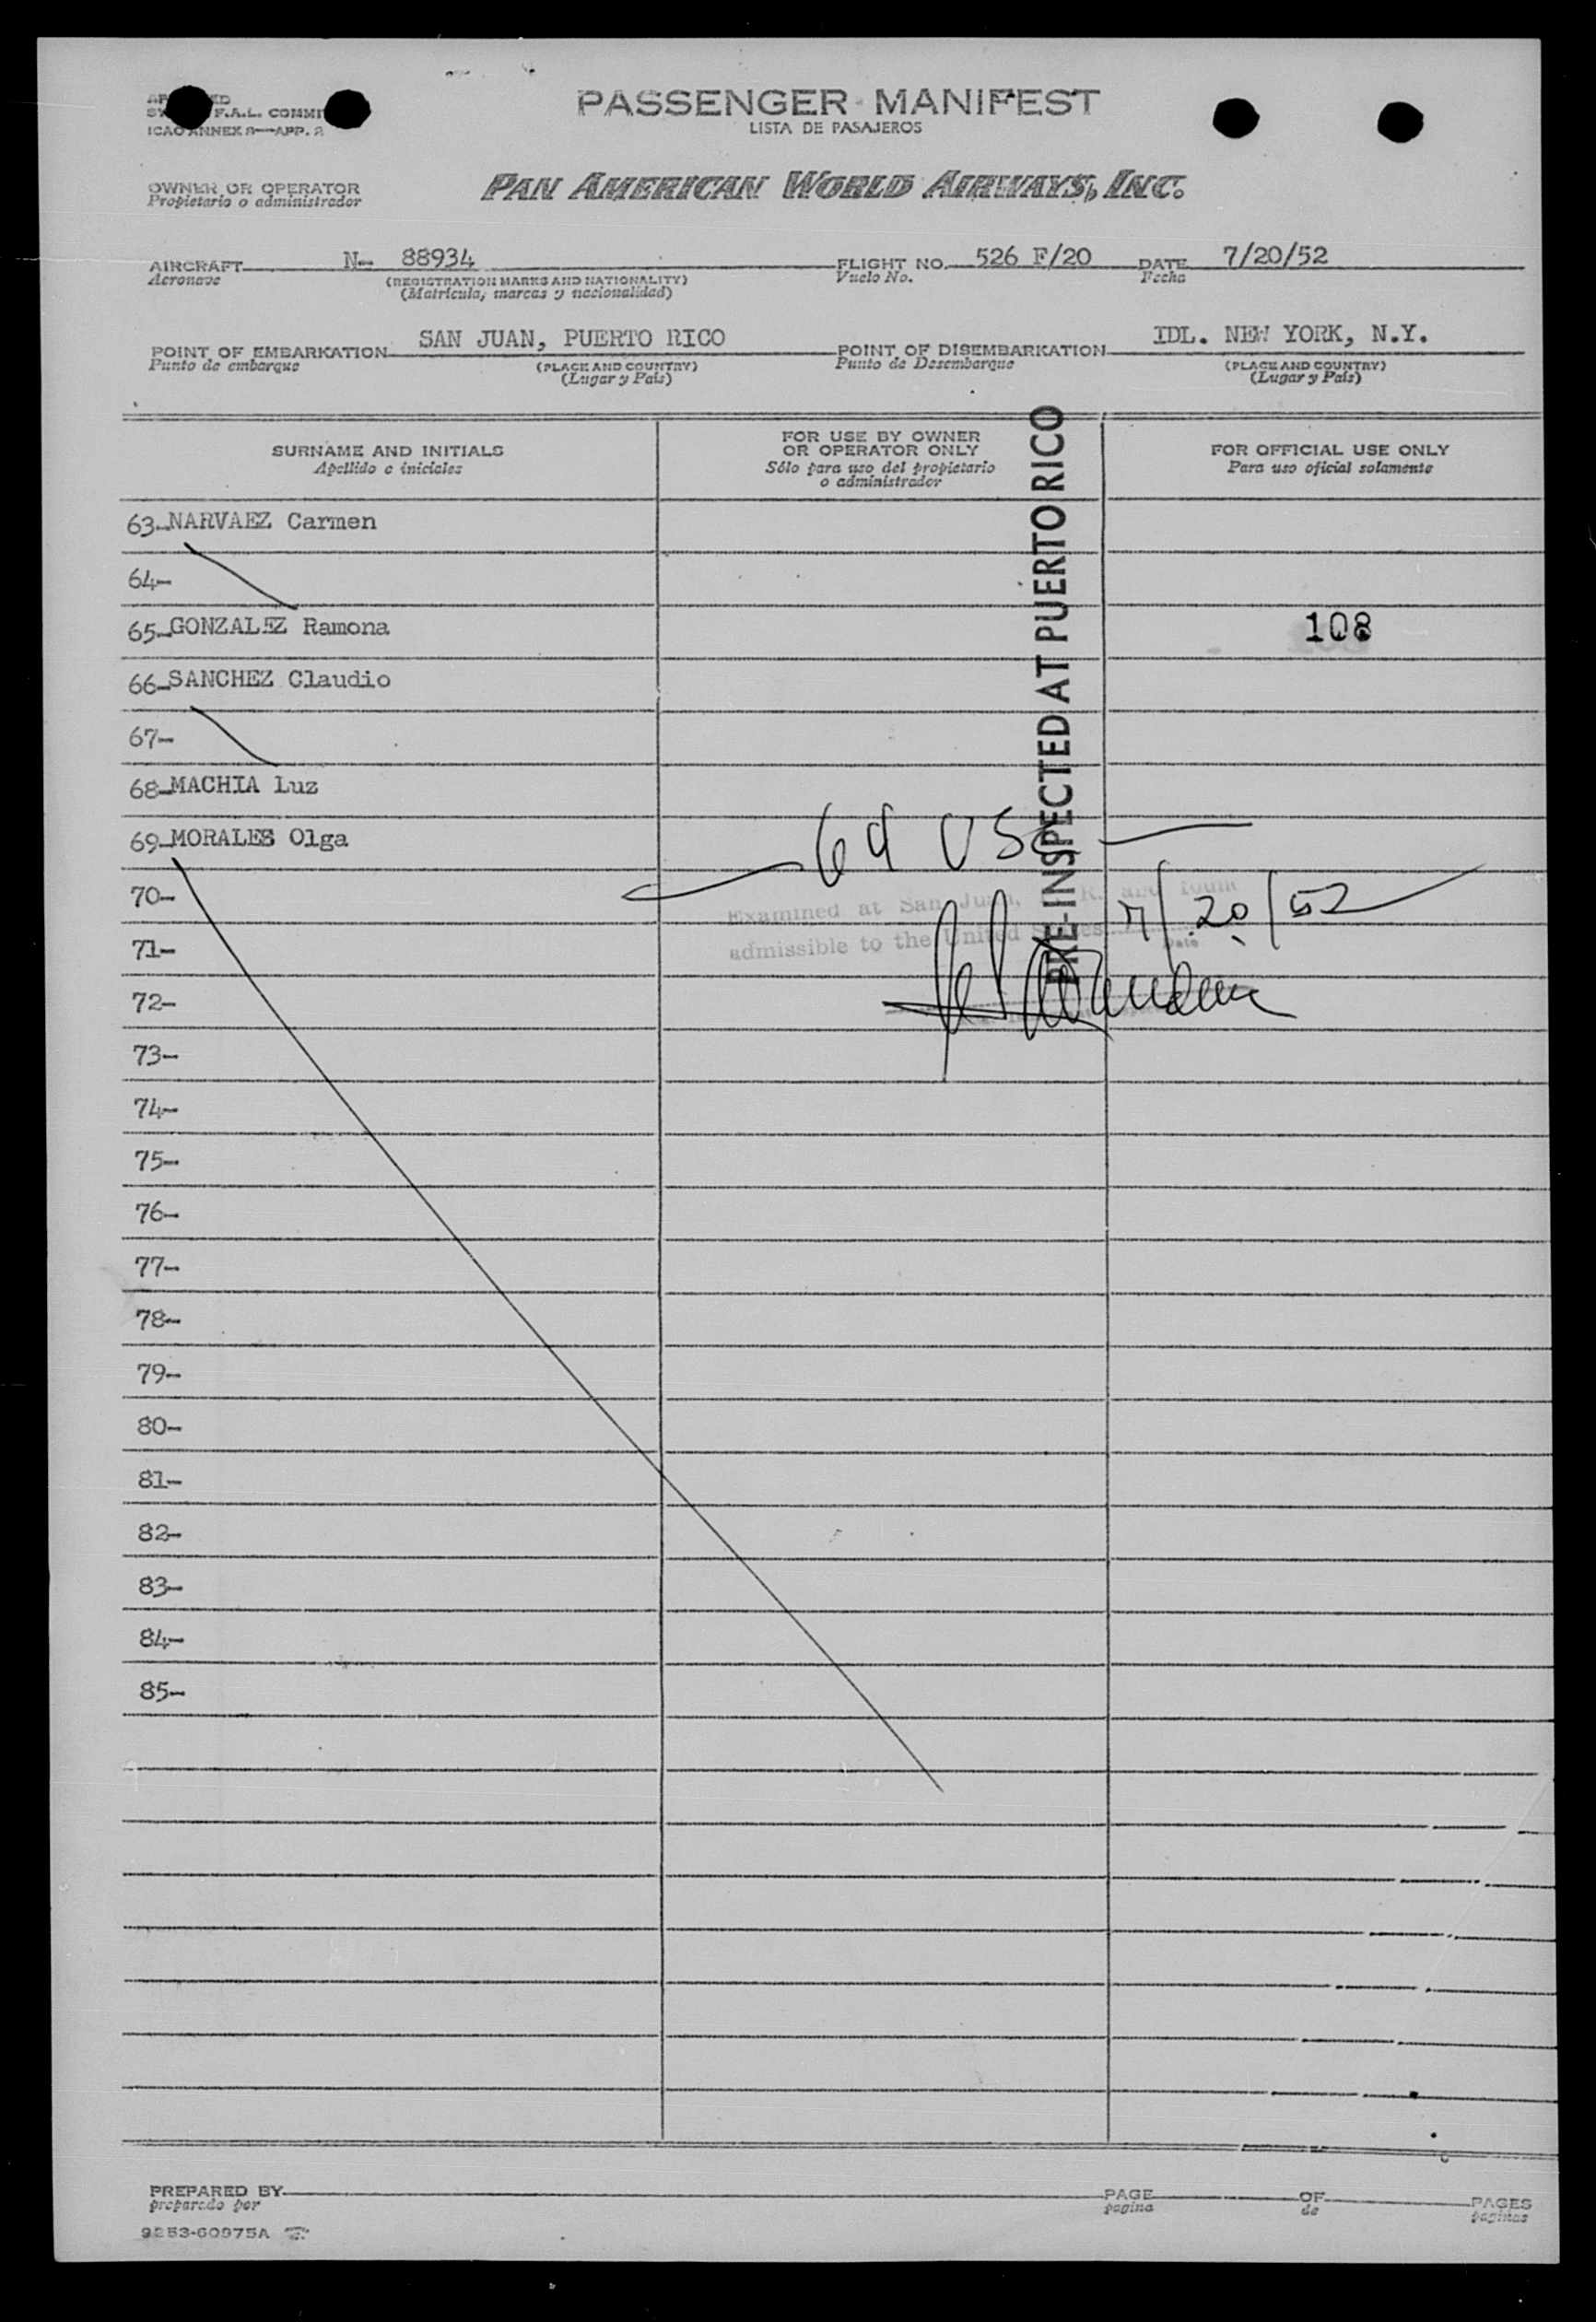 PASSENGER MANIFEST
LISTA DE PASAJEROS
F.A.L.
ICAO ANNEX 9—APP. 2
OWNER OR OPERATOR
Propietario o administrador
PAN AMERICAN WORLD AIRWAYS, INC.
AIRCRAFT N- 88934 FLIGHT NO. 526 F/20 DATE 7/20/52
Aeronave (REGISTRATION MARKS AND NATIONALITY) Vuelo No. Fecha
(Matrícula, marcas y nacionalidad)
POINT OF EMBARKATION SAN JUAN, PUERTO RICO POINT OF DISEMBARKATION IDL. NEW YORK, N.Y.
Punto de embarque (PLACE AND COUNTRY) Punto de Desembarque (PLACE AND COUNTRY)
(Lugar y País) (Lugar y País)
SURNAME AND INITIALS
Apellido e iniciales
FOR USE BY OWNER
OR OPERATOR ONLY
Sólo para uso del propietario
o administrador
FOR OFFICIAL USE ONLY
Para uso oficial solamente
PRE-INSPECTED AT PUERTO RICO
63-NARVAEZ Carmen
64-
65-GONZALEZ Ramona
108
66-SANCHEZ Claudio
67-
68-MACHIA Luz
69-MORALES Olga
64 USC
70-
Examined at San Juan, P.R. and found
7/20/52
71-
admissible to the United States
Date
72-
73-
74-
75-
76-
77-
78-
79-
80-
81-
82-
83-
84-
85-
PREPARED BY PAGE OF PAGES
preparado por pagina de paginas
9253-60975A